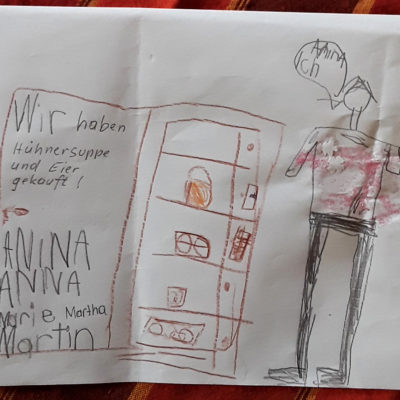 Wir haben
Hühnersuppe
und Eier
gekauft!
ANINA
ANNA
Marie Martha
Martin
ANINA
Ch